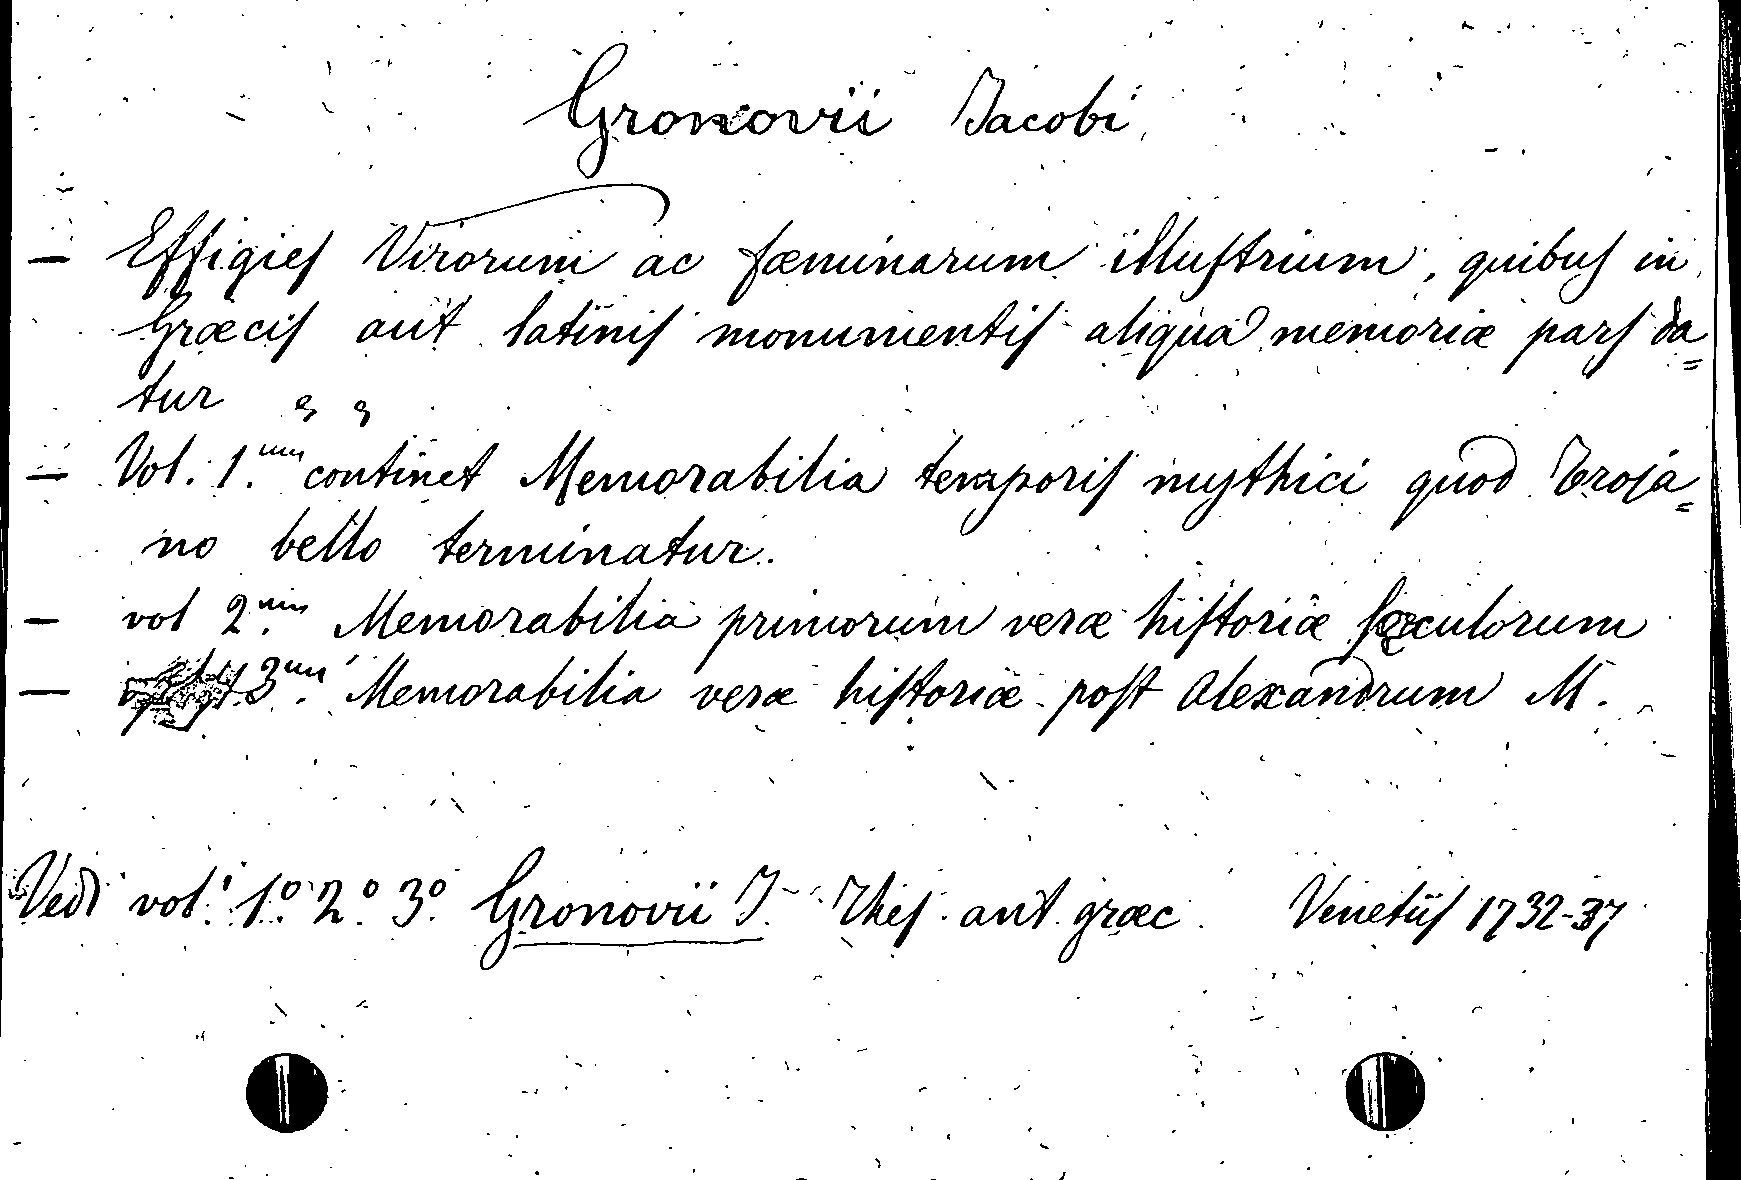 Gronovii Jacobi
— Effigies Virorum ac fæminarum illustrium, quibus in
Græcis aut latinis monumentis aliqua memoriæ pars da=
tur
— Vol. 1.um continet Memorabilia temporis mythici quod Troja=
no bello terminatur.
— vol 2.um Memorabilia primorum veræ historiæ sæculorum
— 3.um Memorabilia veræ historiæ post Alexandrum M.
Vedi vol. 1º 2º 3º Gronovii J. Thes. ant. græc. Venetiis 1732-37